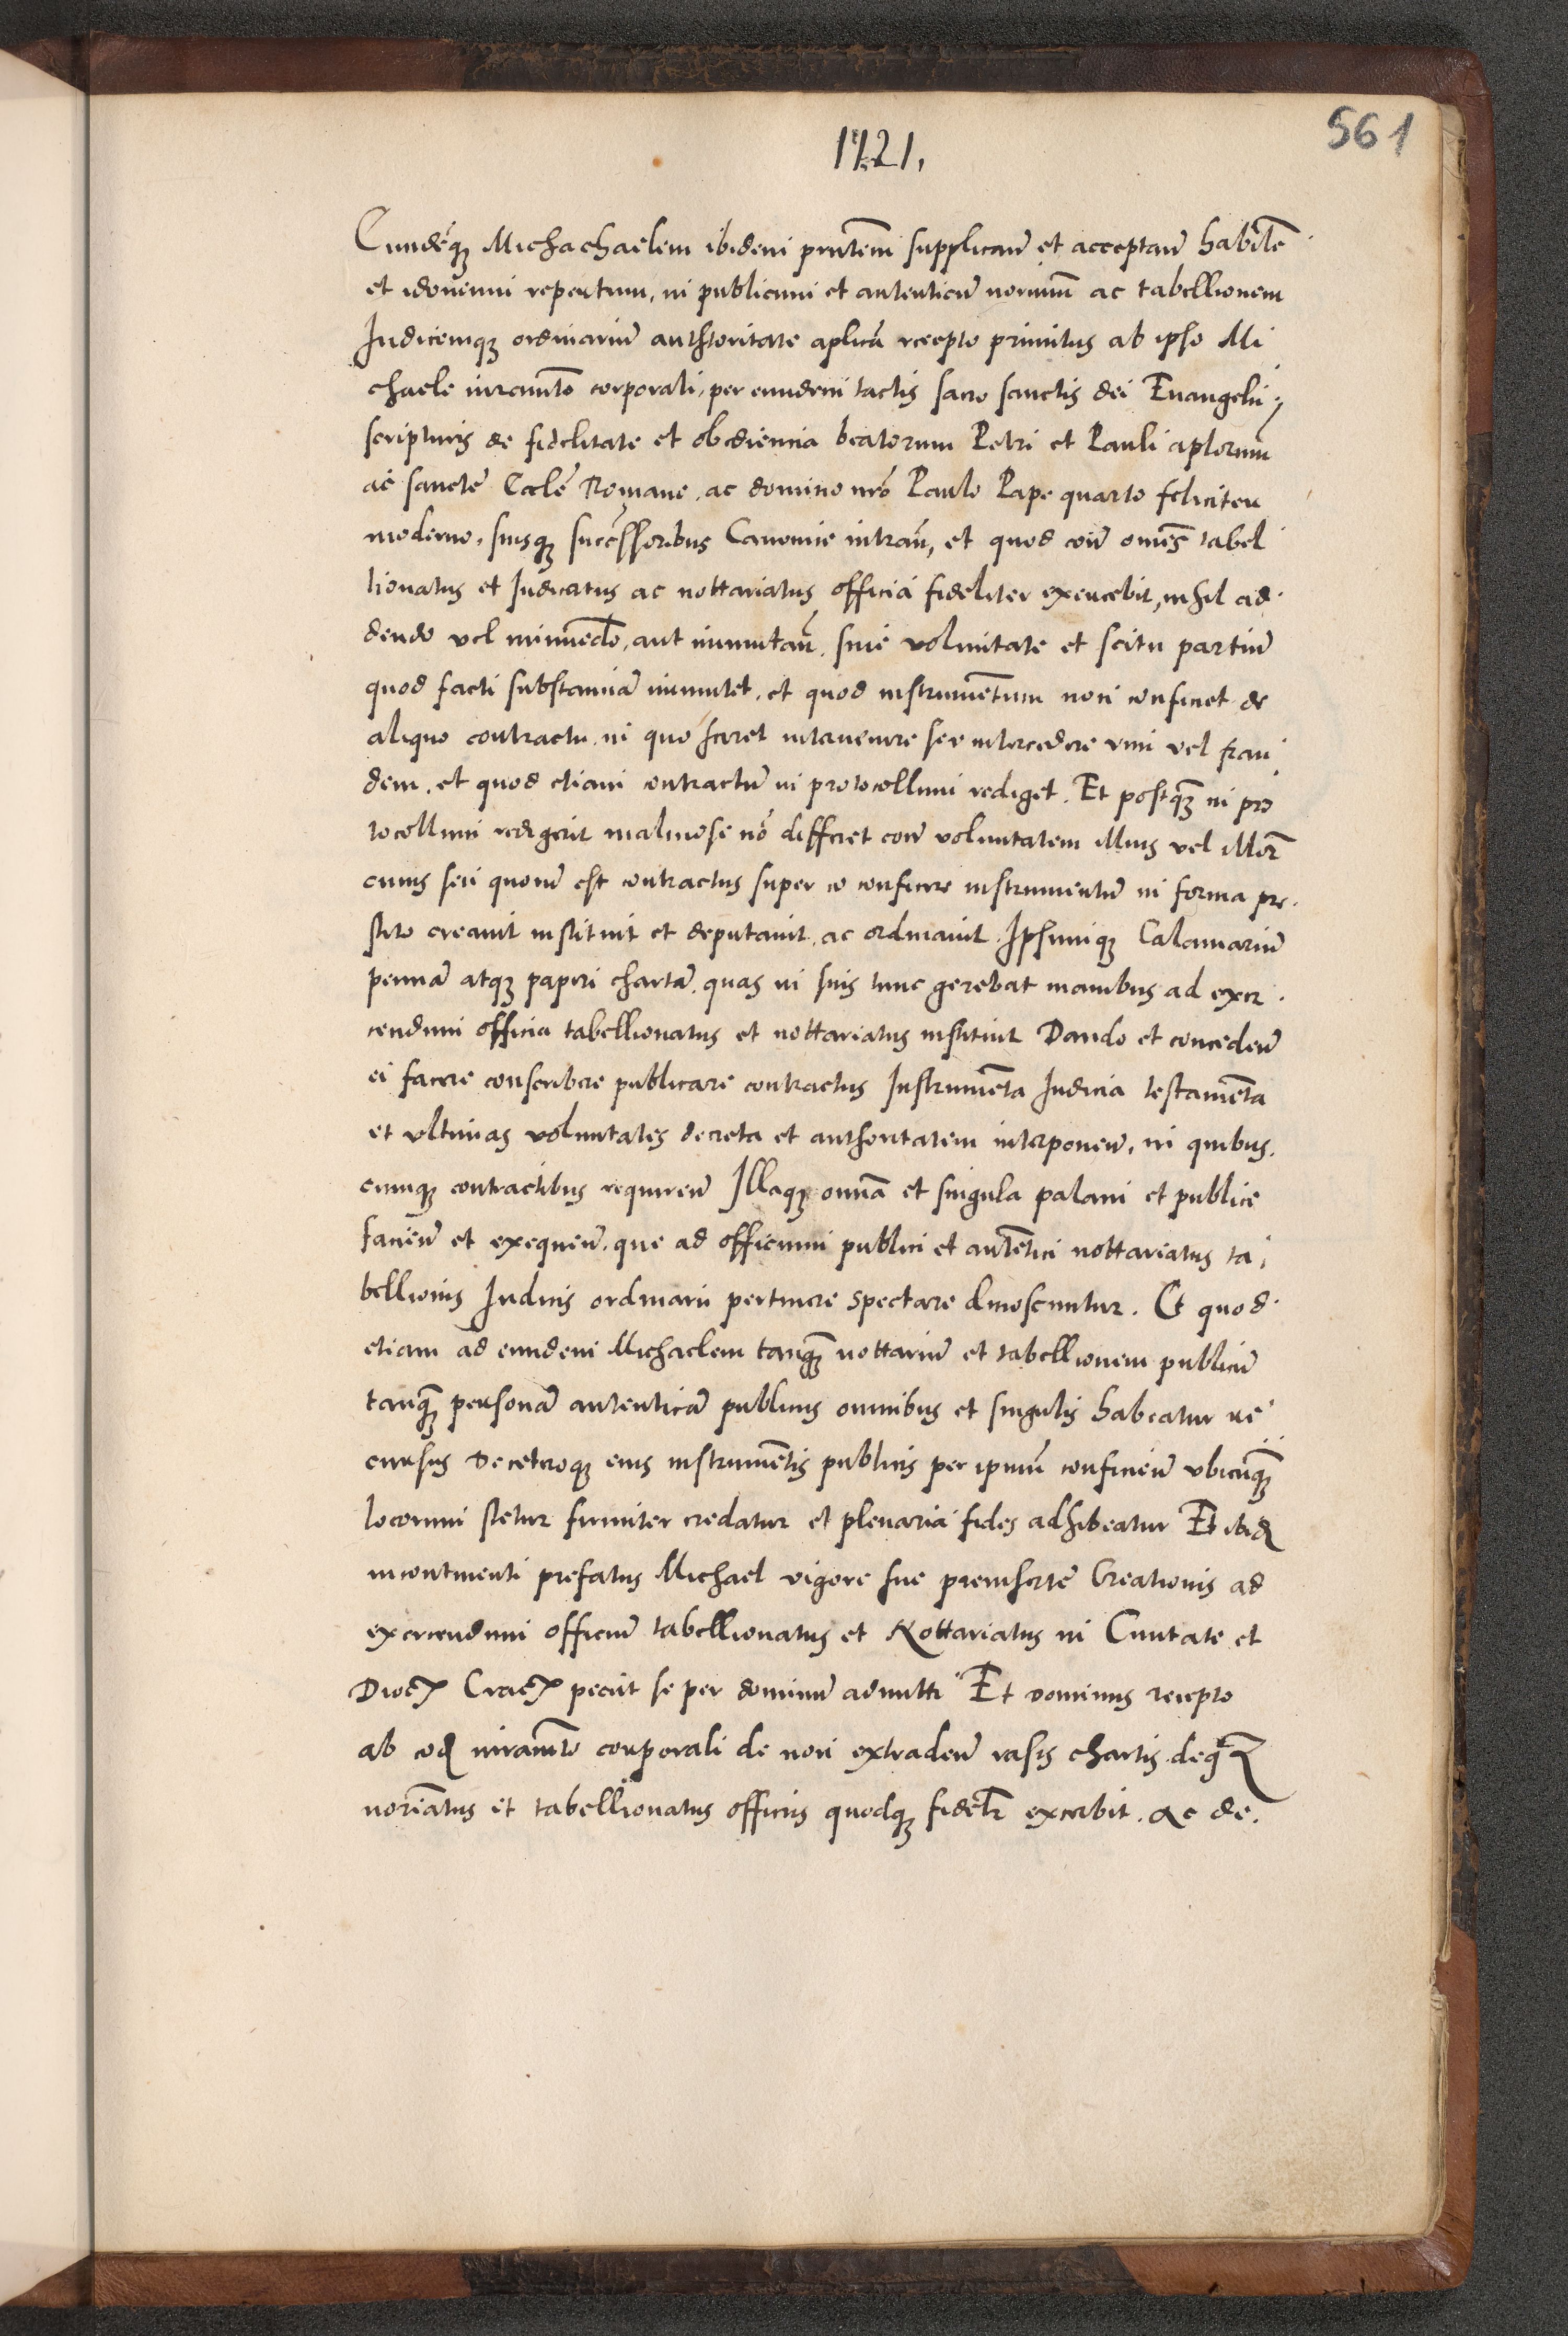 561
1121.
Eundēqȝ Michachaelem ibidem pn̄tem supplican̄ et acceptan̄ habilē
et idoneum repertum, in publicum et autenticū norium̄ ac tabellionem
Iudicemqȝ ordinariū authoritate aplicā recepto primitus ab ipso Mi
chaele iuram̄to corporali, per eundem tactis sacro sanctis dei Euangelii
scripturis de fidelitate et obediencia beatorum Petri et Pauli aplorum
ac sancte Ecclē Romane, ac domino nrō Paulo Pape quarto feliciter
moderno, suisqȝ successoribus Canonice intran̄, et quod coīa omēs tabel
lionatus et Iudicatus ac nottariatus officia fideliter exercebit, nihil ad
dendo vel minuēdo, aut inmutan̄, sine voluntate et scitu partiū
quod facti substanciā inmutet, et quod instrumentum non conficiet de
aliquo contractu, in quo sciret interuenire seu intercedere vim vel frau
dem, et quod etiam contractū in protocollum rediget. Et postqȝ in pro
tocollum redigerit maliciose nō differet con̄ voluntatem illius vel illor̄
cuius seu quorū est contractus super eo conficere instrumentū in forma pre
stito creauit instituit et deputauit, ac ordinauit. Ipsumqȝ Calamariū
pennā atqȝ papiri chartā, quas in suis tunc gerebat manibus ad exer
cendum officia tabellionatus et nottariatus instituit Dando et conceden̄
ei facere conscribere publicare contractus Instrumēta Iudicia testamēta
et vltimas voluntates decreta et authoritatem interponen̄, in quibus
cunqȝ contractibus requiren̄ Illaqȝ omnā et singula palam et publice
facien̄ et exequen̄, que ad officium publici et autētici nottariatus ta
bellionis Iudicis ordinarii pertinere spectare dinoscuntur. Et quod
etiam ad eundem Michaelem tanqȝ nottariū et tabellionem publicū
tanqȝ personā autenticā publicis omnibus et singulis habeatur re
cursus Deceteroqȝ eius instrumētis publicis per ipsum̄ conficien̄ vbicūqȝ
locorum stetur firmiter credatur et plenaria fides adhibeatur Et ibidꝫ
incontinenti prefatus Michael vigore sue preinserte Creationis ad
exercendum officiū tabellionatus et Nottariatus in Ciuitate et
Dioc̄ Crac̄ peciit se per dominū admitti Et dominus recepto
ab eodꝫ iuram̄to corporali de non extraden̄ rasis chartis, deqȝ
noriātus et tabellionatus officiis quodqȝ fidel̄r exercbit, ac de